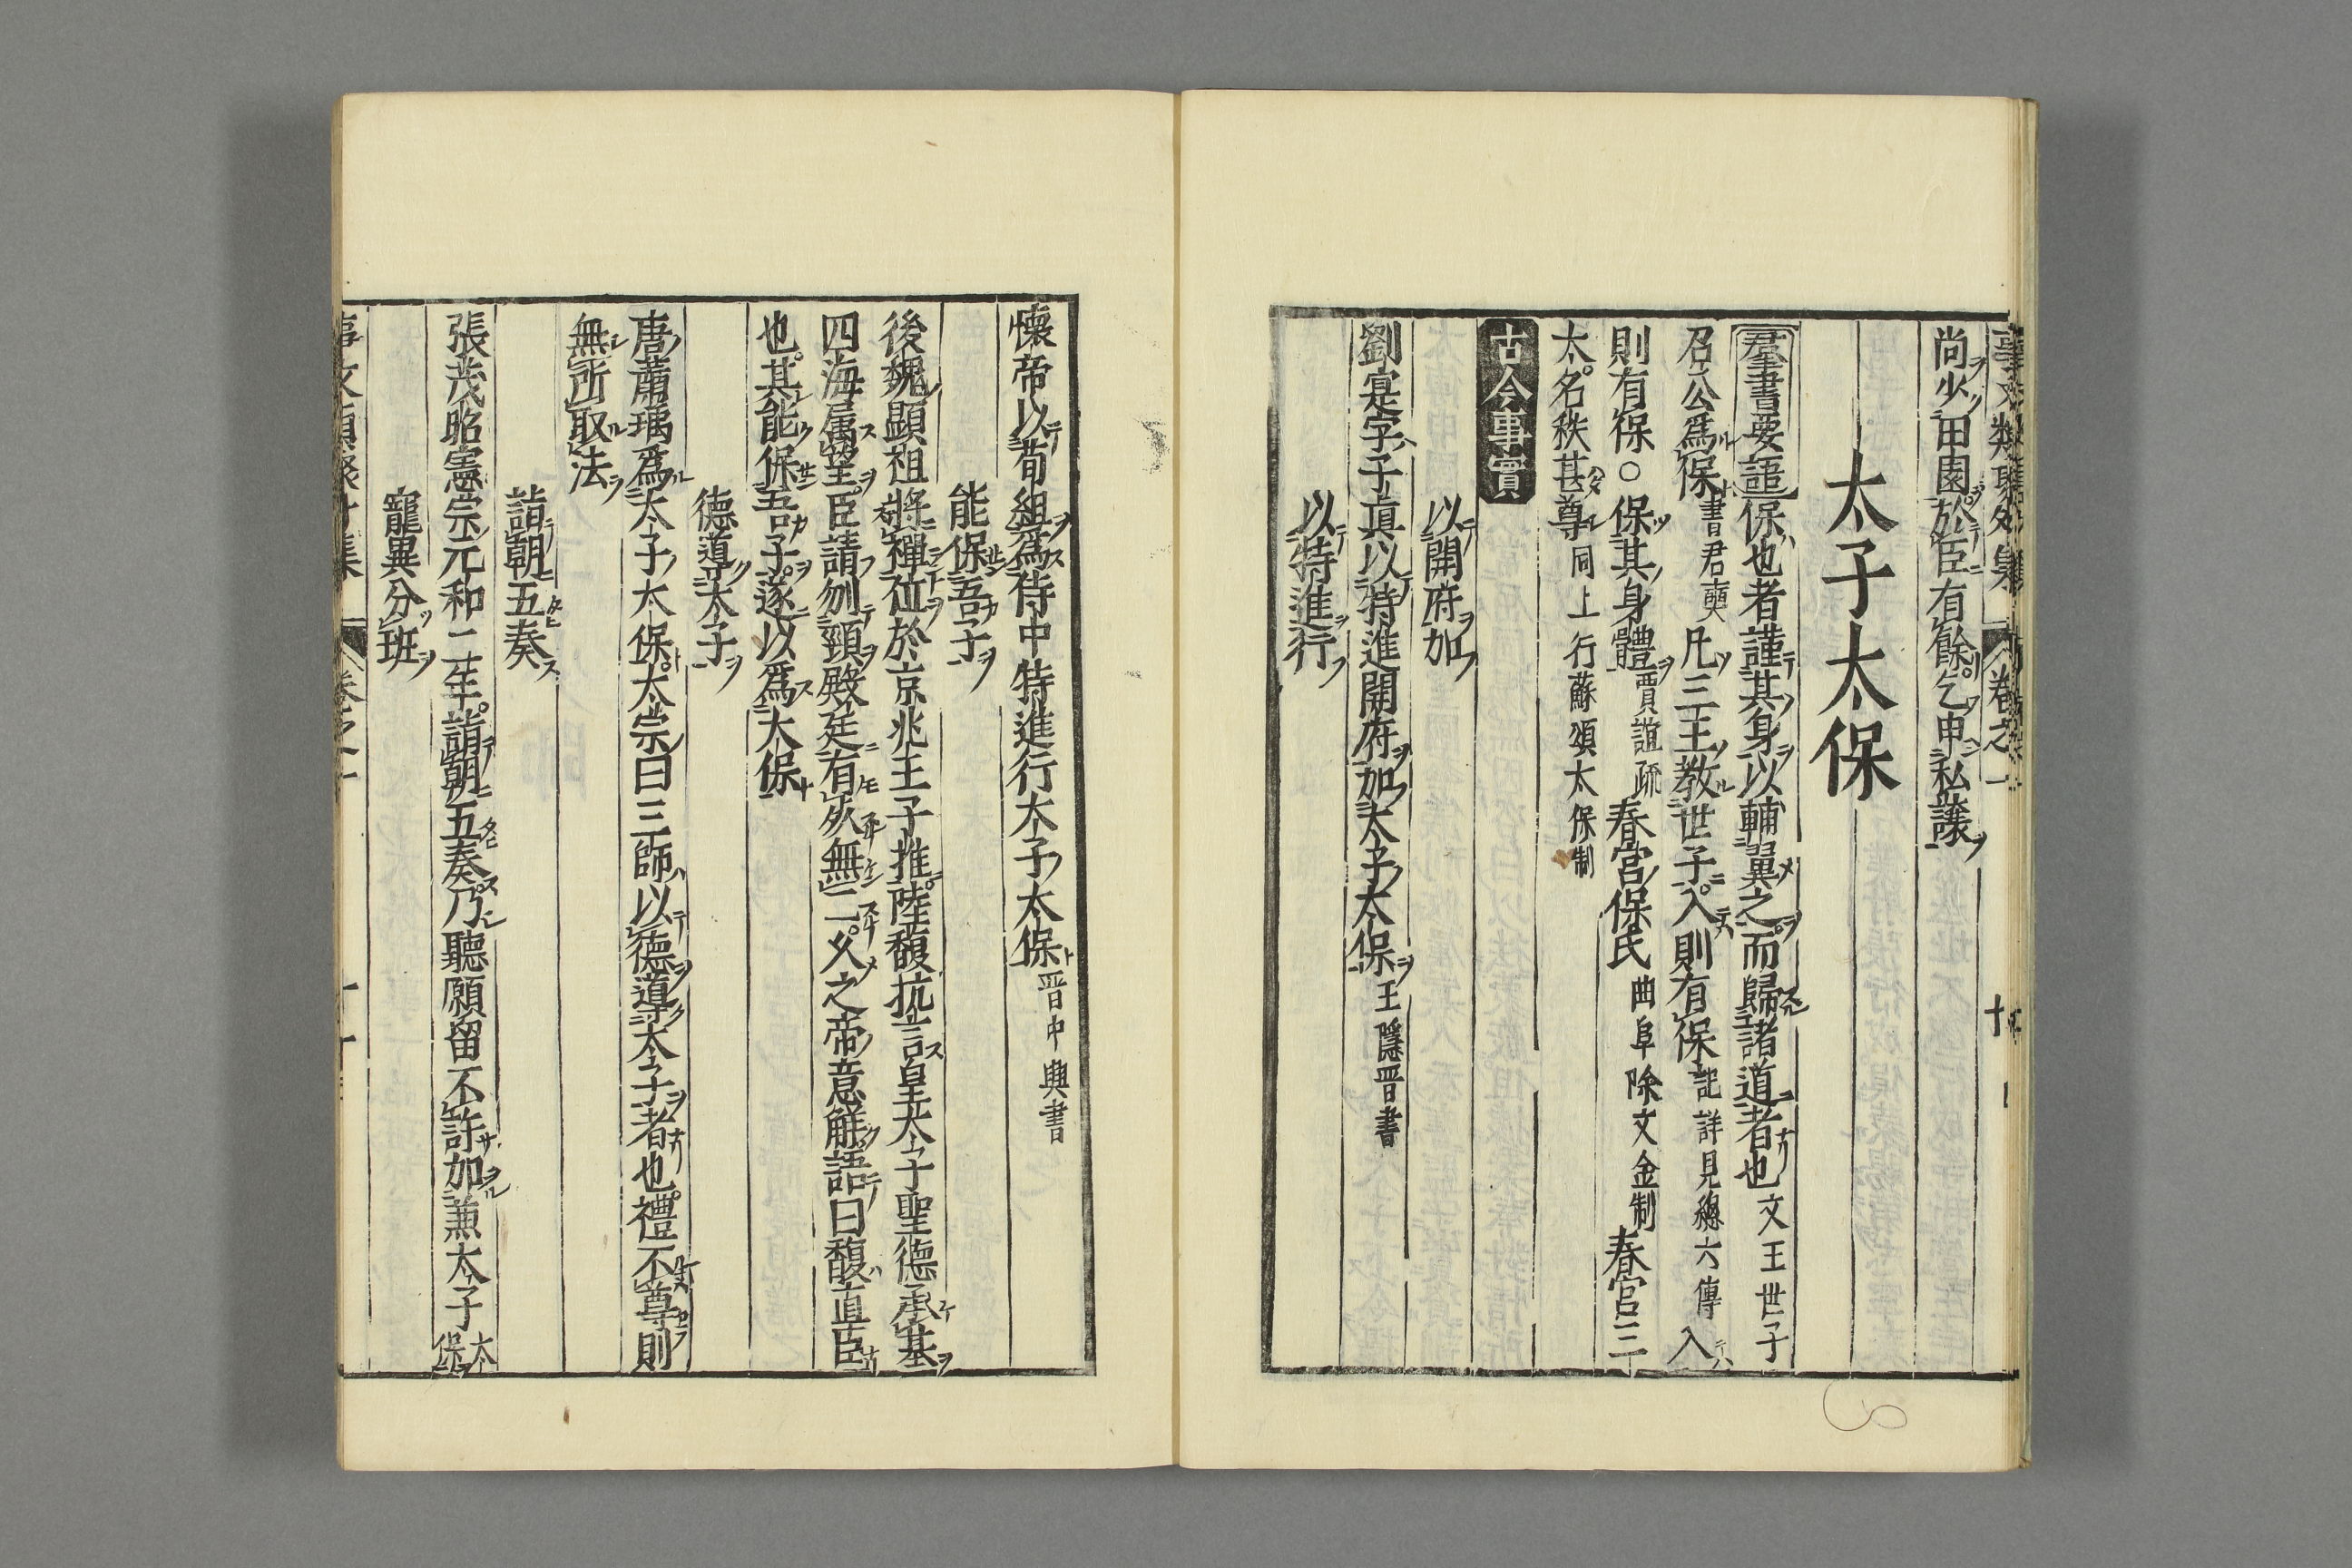 尚少田園於臣有餘乞申私讓
太子太保
羣書要語保也者謹其身以輔翼之而歸諸道者也文王世子
召公爲保書君奭凡三王教世子入則有保記詳見總六傳入
則有保○保其身體賈誼疏春宮保氏曲阜除文金制春官三
太名秩甚尊同上行蘇頌太保制
古今事實
以開府加
劉寔字子眞以特進開府加太子太保王隱晋書
以特進行
懷帝以荀組爲侍中特進行太子太保晋中興書
能保吾子
後魏顯祖將禪位於京兆王子推陸馥抗言皇太子聖德承基
四海属望臣請刎頸殿廷有死無二久之帝意解語曰馥直臣
也其能保吾子遂以爲太保
德導太子
唐蕭瑀爲太子太保太宗曰三師以德導太子者也禮不尊則
無所取法
詣朝五奏
張茂昭憲宗元和二年詣朝五奏乃聽願留不許加兼太子太保
寵異分班